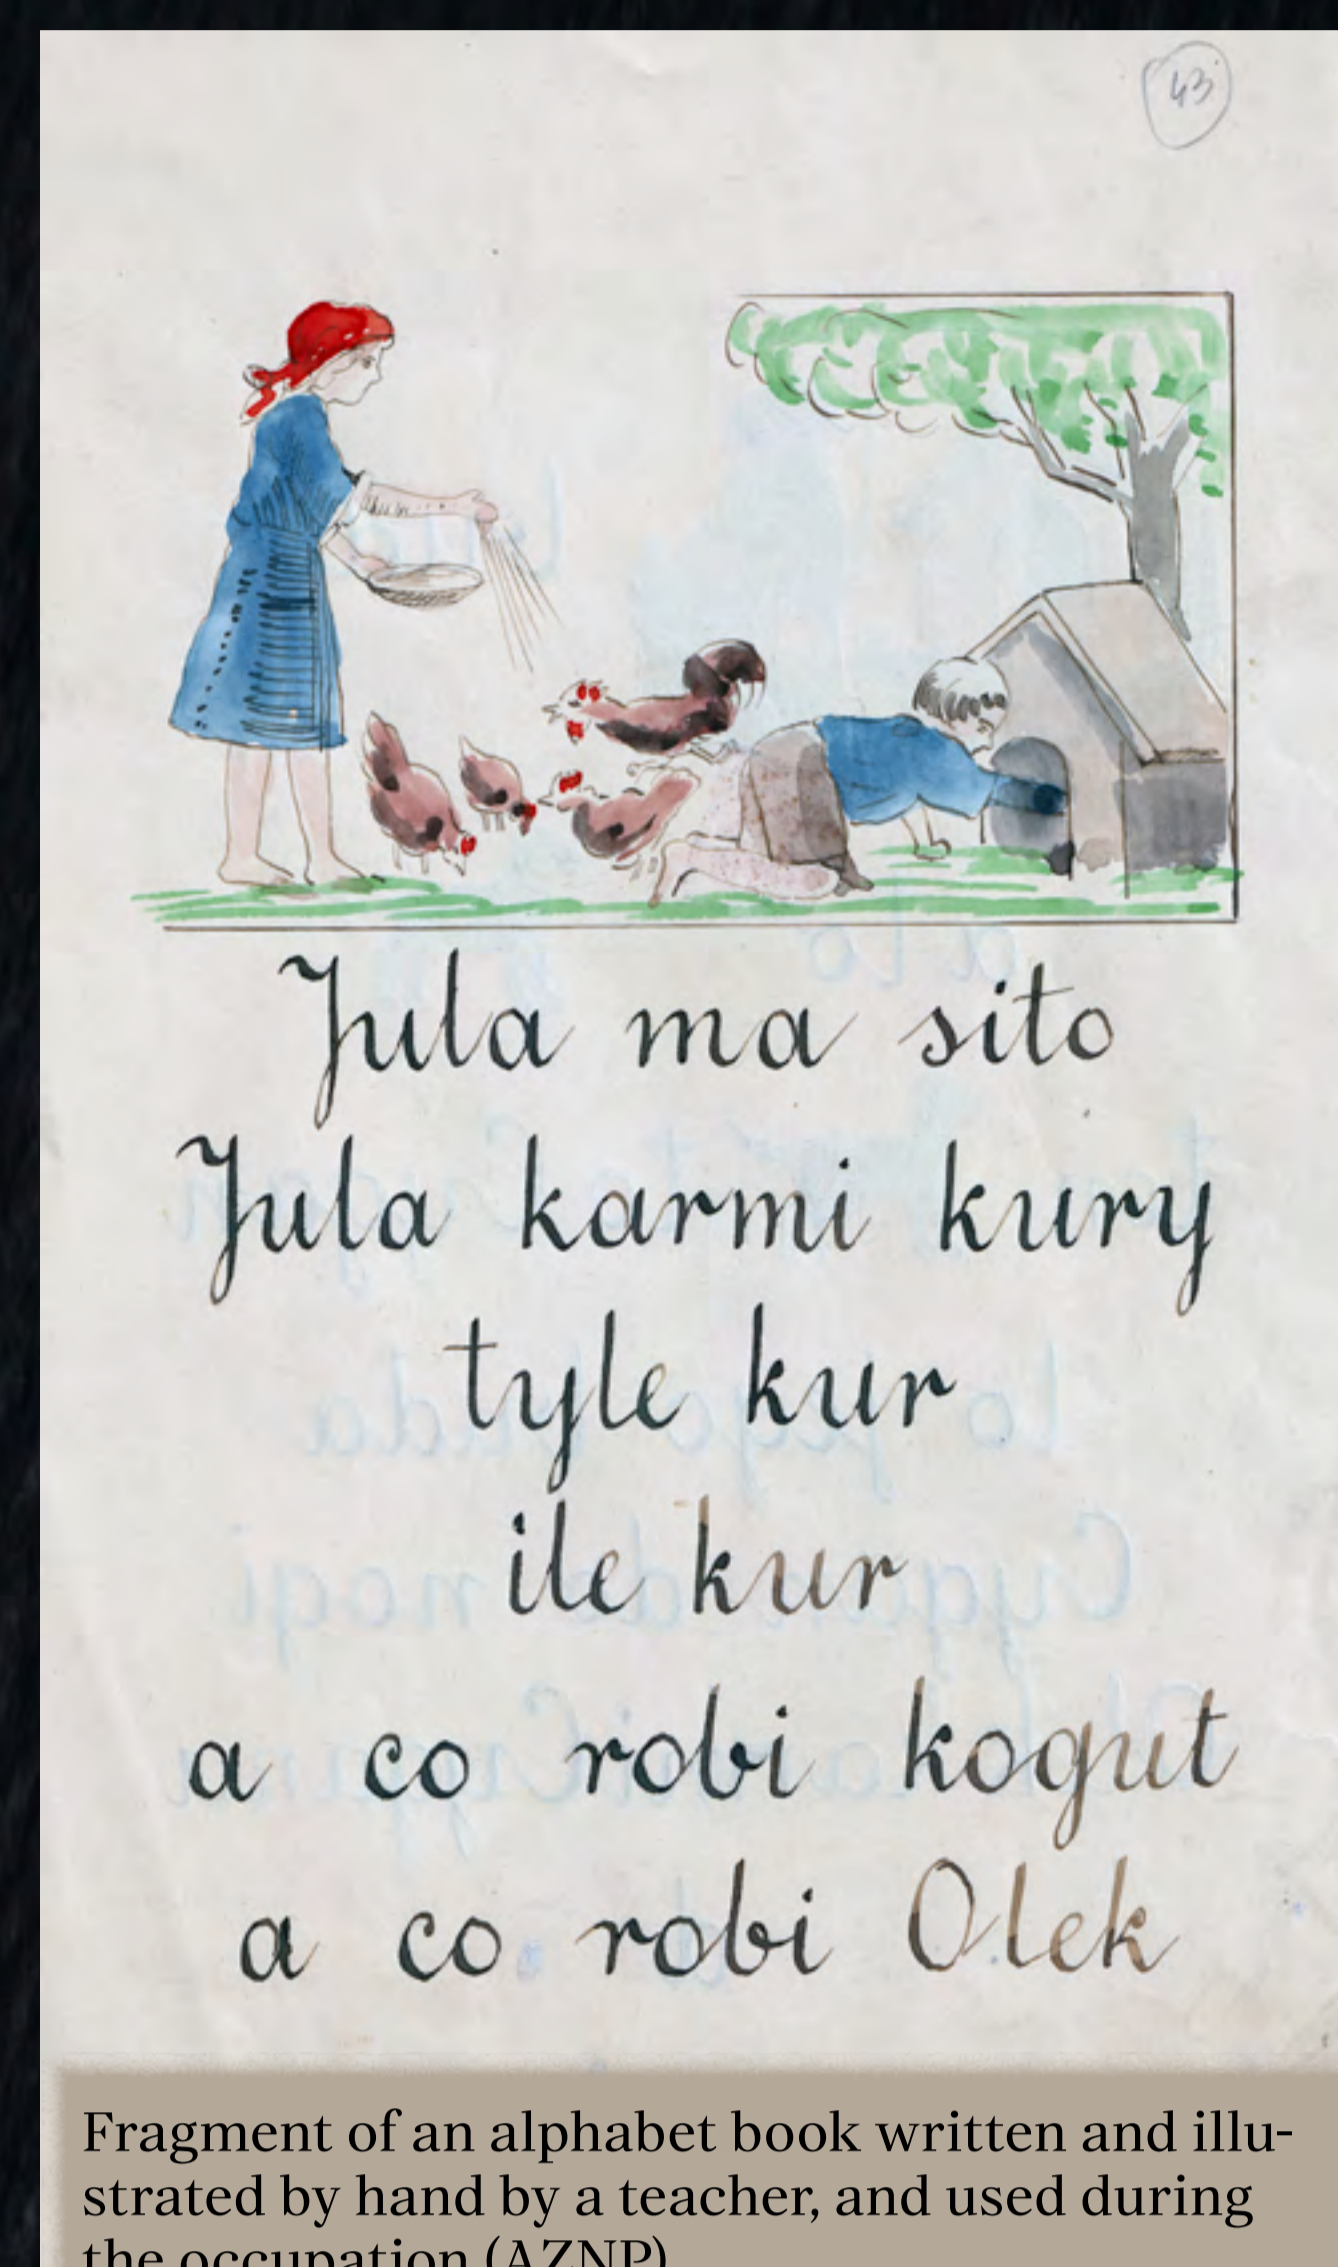 43
Jula ma sito
Jula karmi kury
tyle kur
ile kur
a co robi kogut
a co robi Olek
Fragment of an alphabet book written and illu-
strated by hand by a teacher, and used during
the occupation (AZNP)